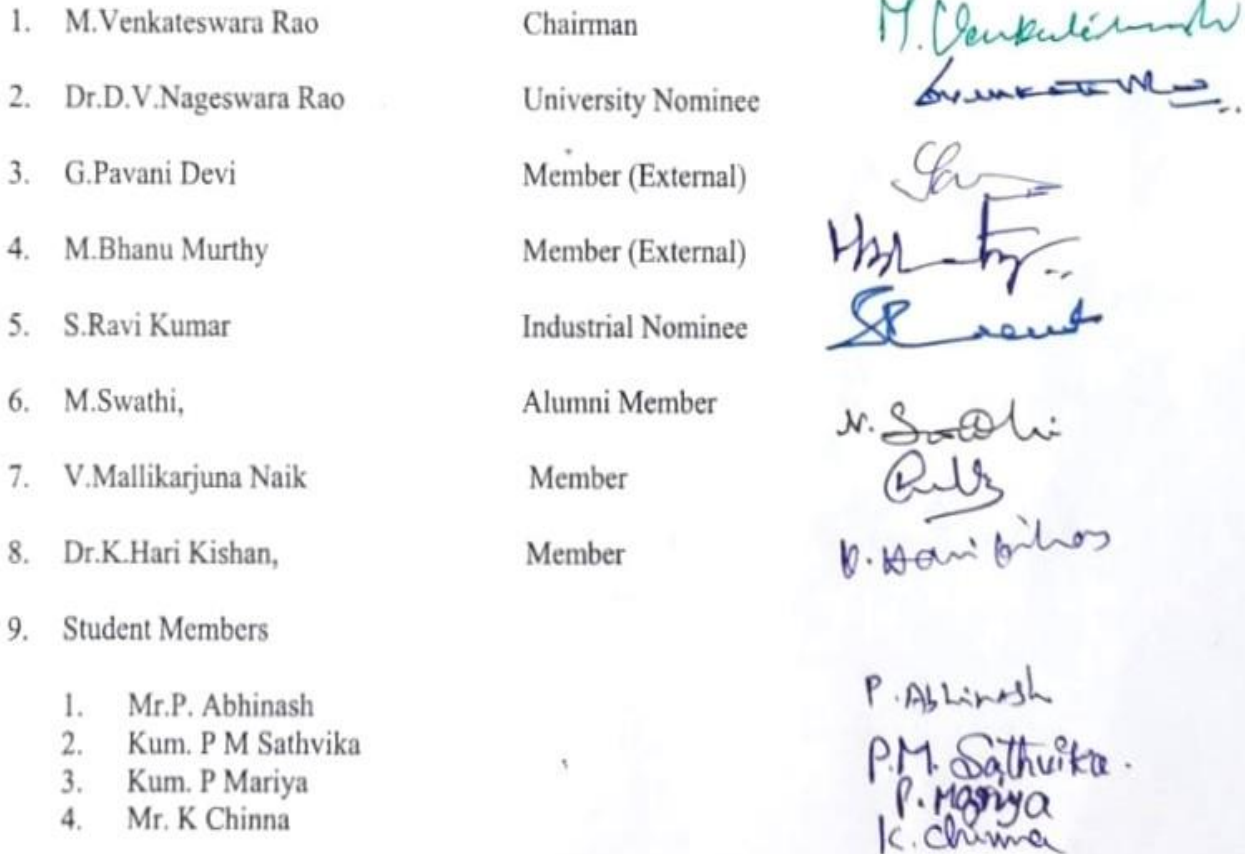 1. M.Venkateswara Rao Chairman
2. Dr.D.V.Nageswara Rao University Nominee
3. G.Pavani Devi Member (External)
4. M.Bhanu Murthy Member (External)
5. S.Ravi Kumar Industrial Nominee
6. M.Swathi, Alumni Member
7. V.Mallikarjuna Naik Member
8. Dr.K.Hari Kishan, Member
9. Student Members
1. Mr.P. Abhinash P. Abhinash
2. Kum. P M Sathvika P.M. Sathvika.
3. Kum. P Mariya P. Mariya
4. Mr. K Chinna K. Chinna